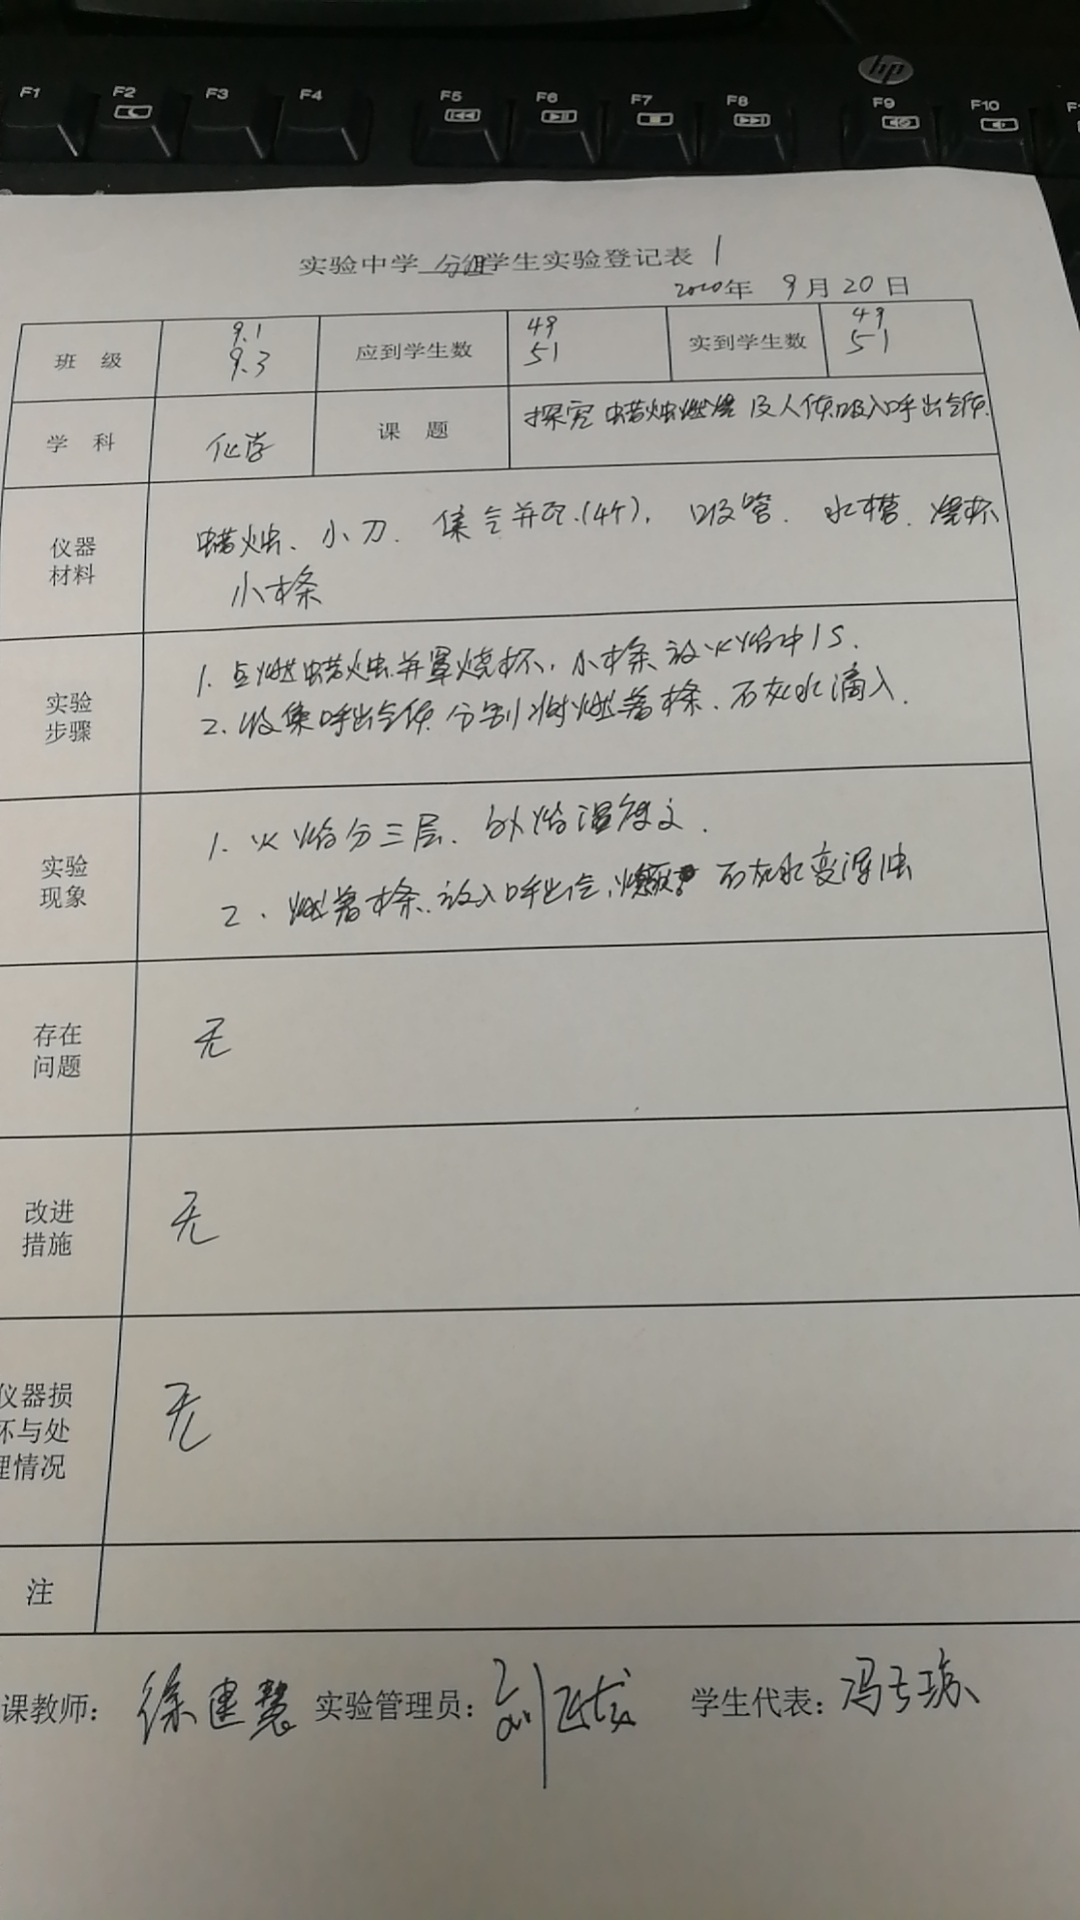 F1 F2 F3 F4 F5 F6 F7 F8 F9 F10
hp
实验中学 分组 学生实验登记表 1
2020年 9月20日
班 级 9.1 9.3 应到学生数 49 51 实到学生数 49 51
学 科 化学 课 题 探究蜡烛燃烧及人体吸入呼出气体.
仪器
材料
蜡烛、小刀. 集气瓶.(4个). 吸管. 水槽. 烧杯
小木条
实验
步骤
1. 点燃蜡烛并罩烧杯, 小木条放火焰中1S.
2. 收集呼出气体分别将燃着木条、石灰水滴入.
实验
现象
1. 火焰分三层. 外焰温度
2. 燃着木条.放入呼出气, 石灰水变浑浊
存在
问题
无
改进
措施
无
仪器损
坏与处
理情况
无
注
课教师: 徐建慧 实验管理员: 刘 学生代表: 冯